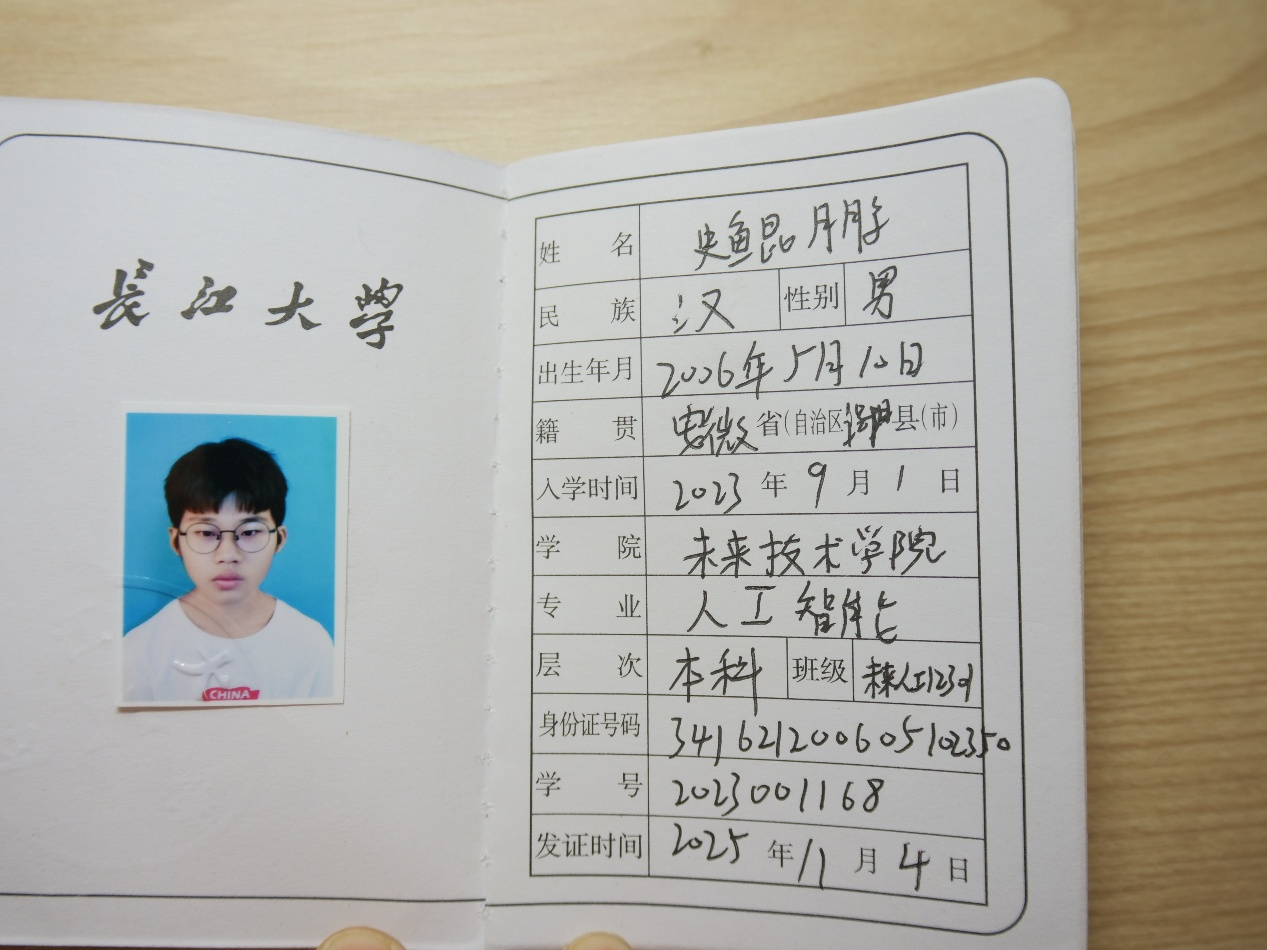 长江大学
CHINA
姓名 史鲲鹏
民族 汉 性别 男
出生年月 2006年5月10日
籍贯 安徽 省(自治区 县(市)
入学时间 2023 年 9 月 1 日
学院 未来技术学院
专业 人工智能
层次 本科 班级 未来人工12301
身份证号码 341621200605102350
学号 2023001168
发证时间 2025 年 11 月 4 日